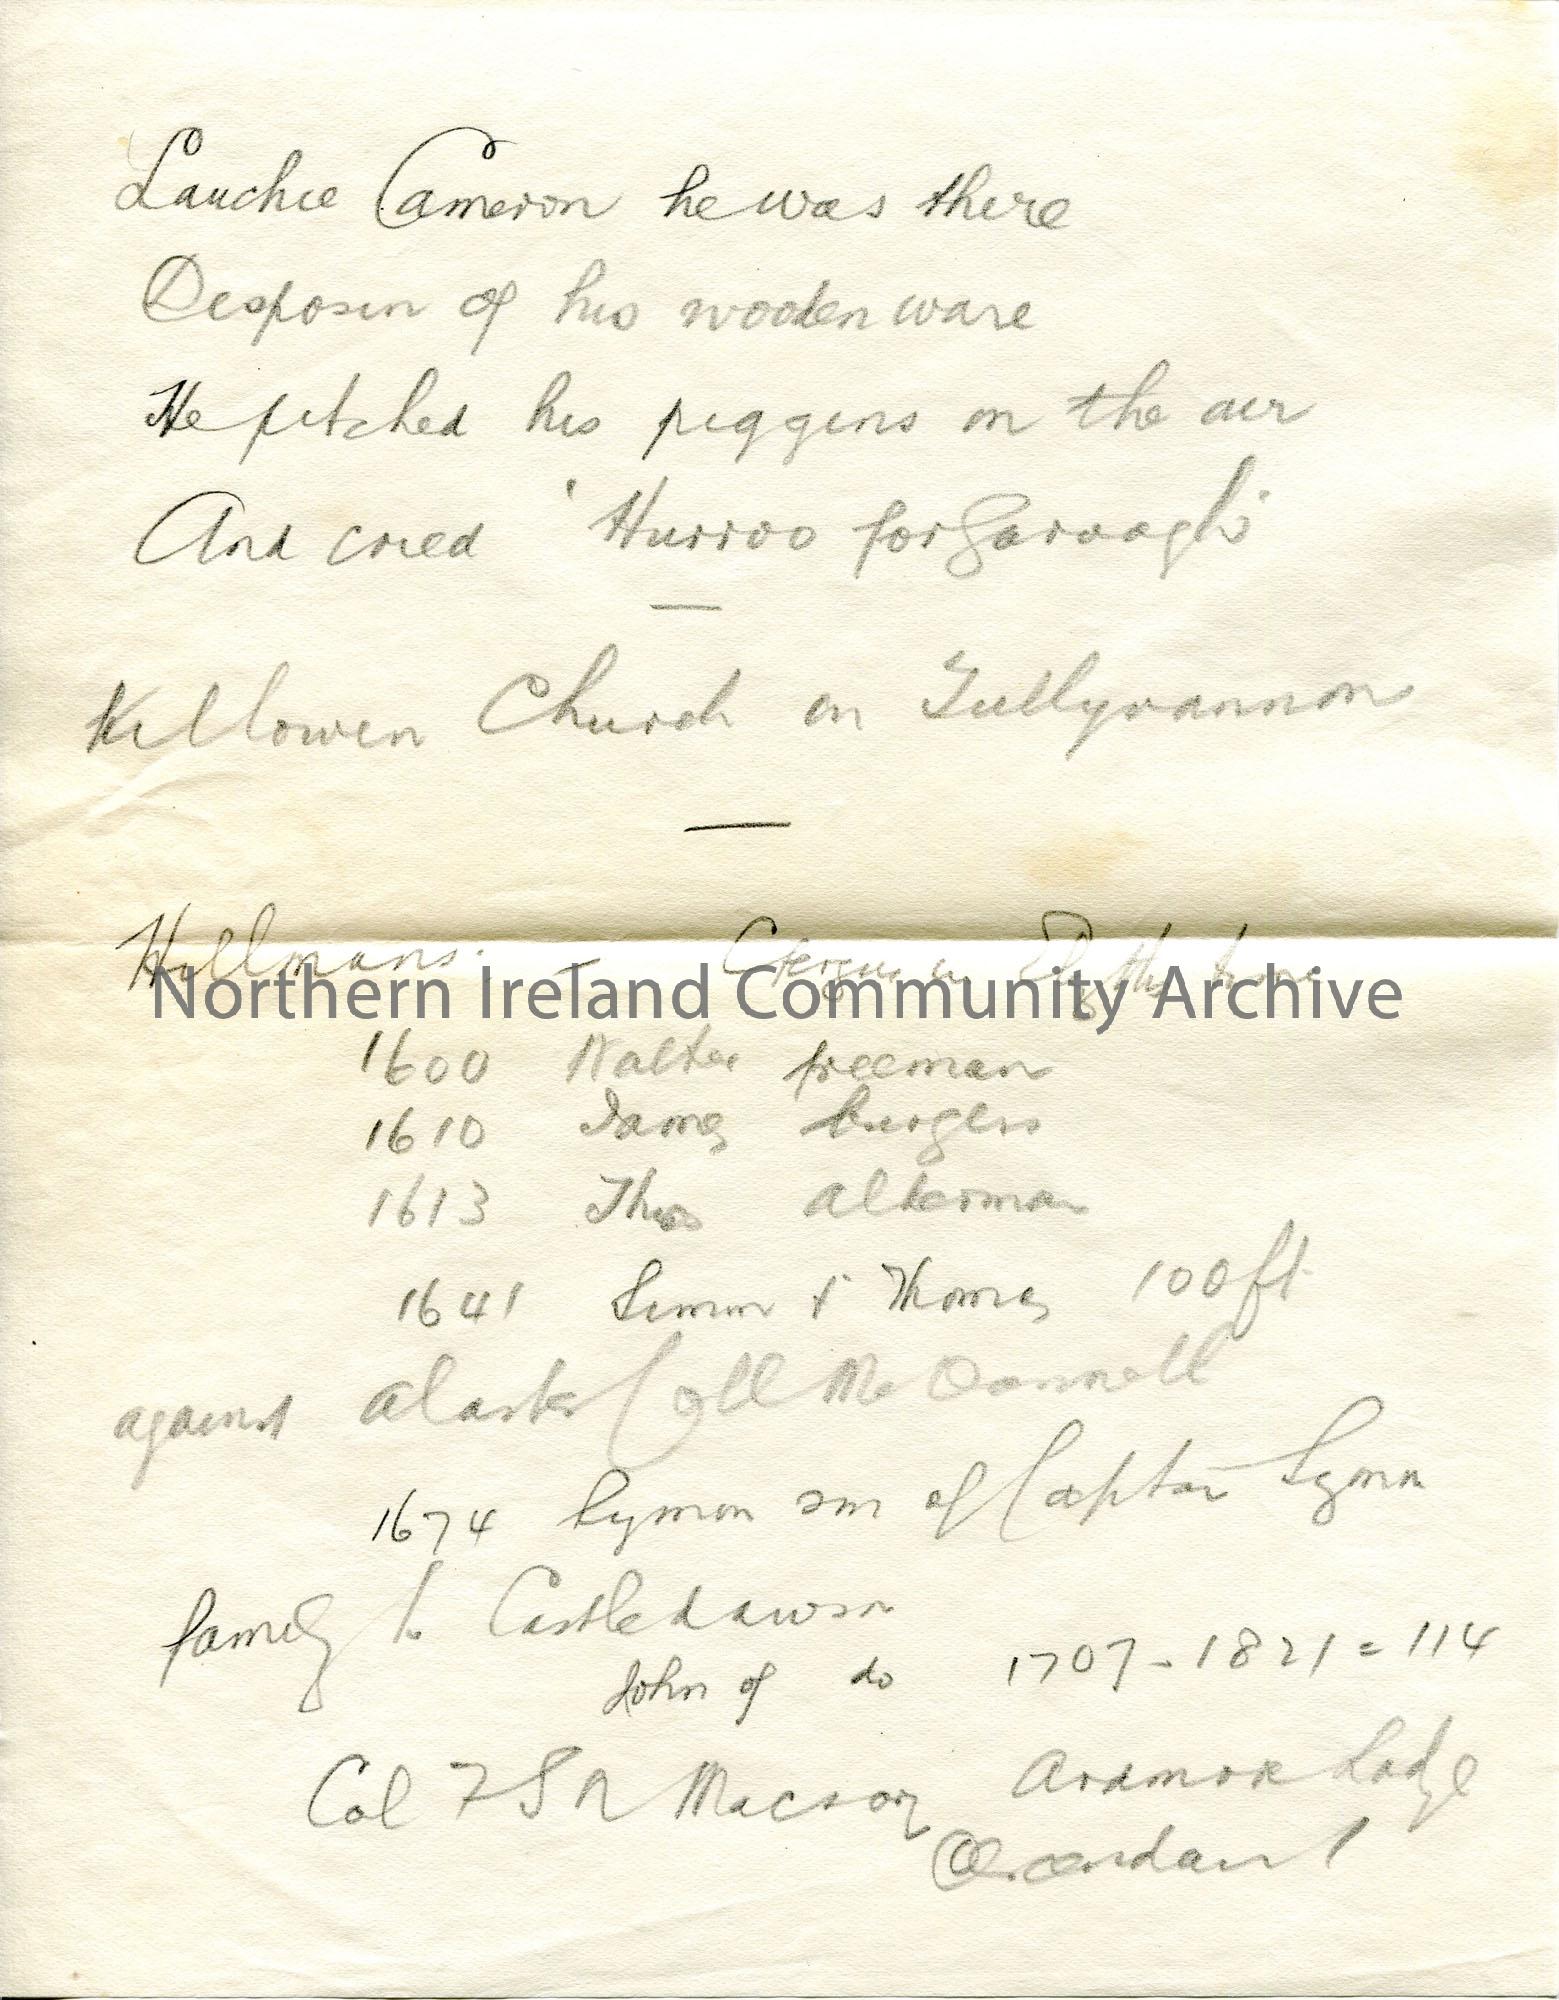 Lauchie Cameron he was there
Disposin of his wooden ware
He pitched his piggins in the air
And cried 'Hurroo for Garvagh'
Killowen Church in Tullyrannon
Hillmans. -
Northern Ireland Community Archive
1600 Walter freeman
1610 James burgess
1613 Thos alderman
1641 Simon & Thomas 100 ft
against Alaster Coll McDonnell
1674 Symon son of Captain Symon
family to Castledawson
John of do 1707 - 1821 = 114
Col F S N Macrory Ardmore Lodge